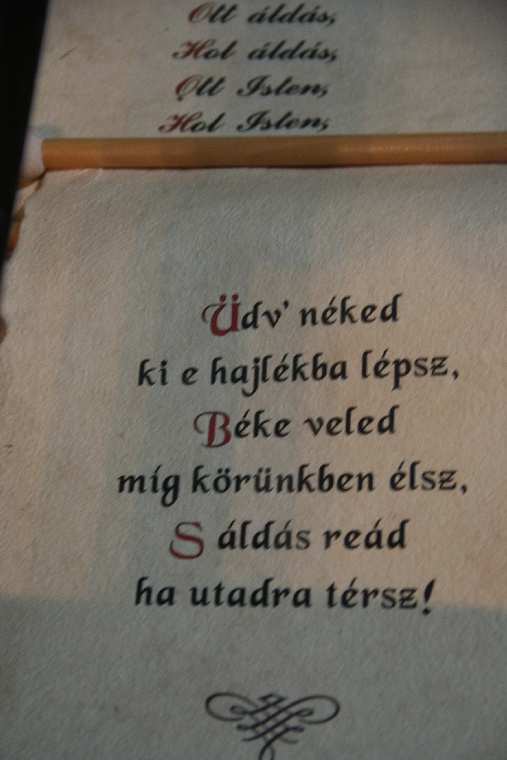 Ott áldás,
Hol áldás,
Ott Isten,
Hol Isten,
Üdv' néked
ki e hajlékba lépsz,
Béke veled
míg körünkben élsz,
S áldás reád
ha utadra térsz!